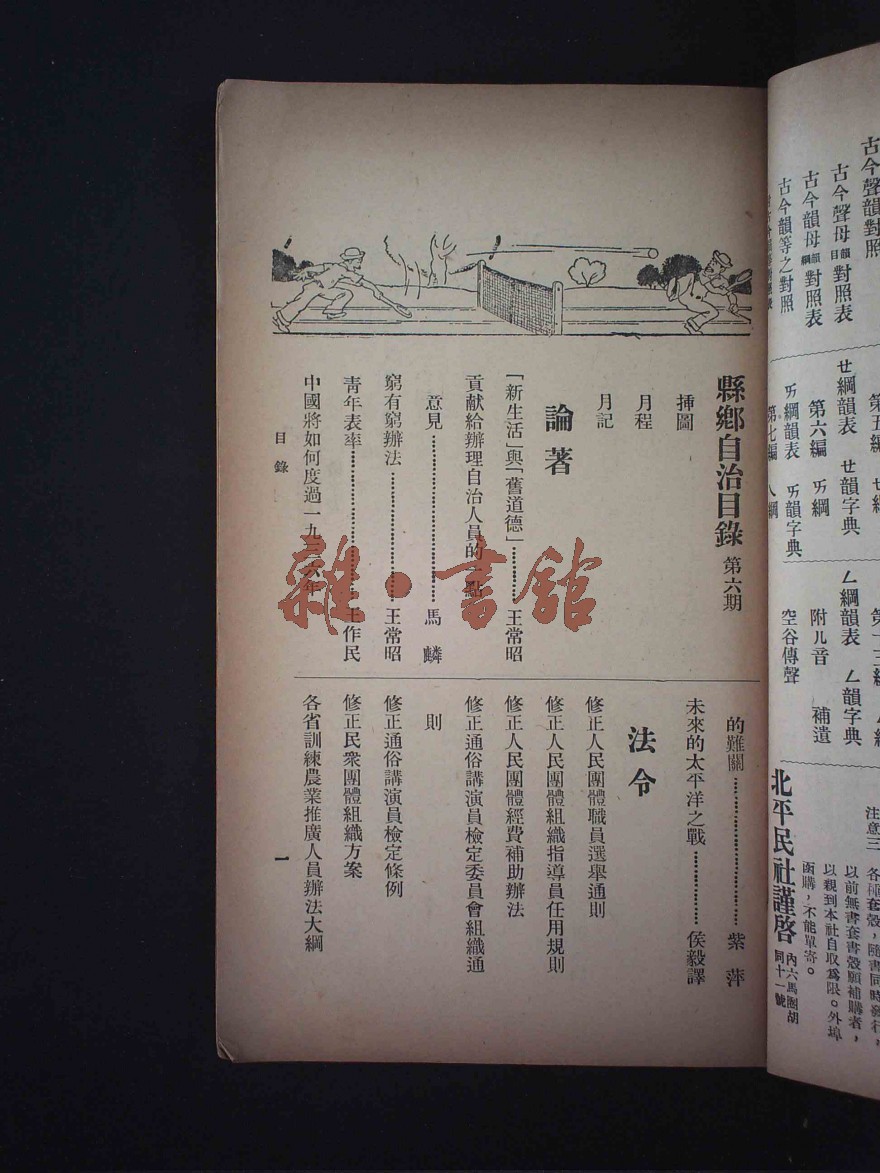 古今聲韻對照
古今聲母韻目對照表
古今韻母韻綱對照表
古今韻等之對照
第五編
ㄝ綱韻表 ㄝ韻字典
第六編 ㄞ綱
ㄞ綱韻表 ㄞ韻字典
第七編
ㄥ綱韻表 ㄥ韻字典
附ㄦ音 補遺
空谷傳聲
注意三
各種套殼，隨書同時發行，
以前無書套書殼願補購者，
以親到本社自取爲限。外埠
函購，不能單寄。
北平民社謹啓 內六馬圈胡同十一號
縣鄉自治目錄 第六期
插圖
月程
月記
論著
「新生活」與「舊道德」…………王常昭
貢献給辦理自治人員的一點
意見…………馬麟
窮有窮辦法…………王常昭
青年表率…………王作民
中國將如何度過一九三六年
的難關…………紫萍
未來的太平洋之戰…………侯毅譯
法令
修正人民團體職員選舉通則
修正人民團體組織指導員任用規則
修正人民團體經費補助辦法
修正通俗講演員檢定委員會組織通
則
修正通俗講演員檢定條例
修正民衆團體組織方案
各省訓練農業推廣人員辦法大綱
目錄
一
雜·書館